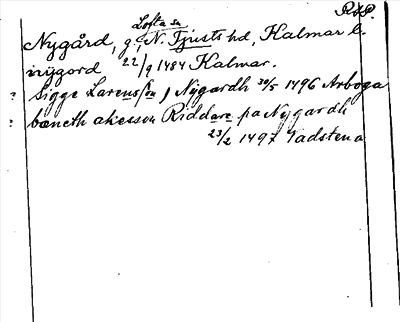 RAP.
Lofta sn
Nygård, g., N. Tjusts hd, Kalmar l.
nygord 22/9 1484 Kalmar.
? Sigge Larensson j Nygardh 30/5 1496 Arboga
? bæneth akesson Riddare pa Nygardh
23/2 1497 Vadstena